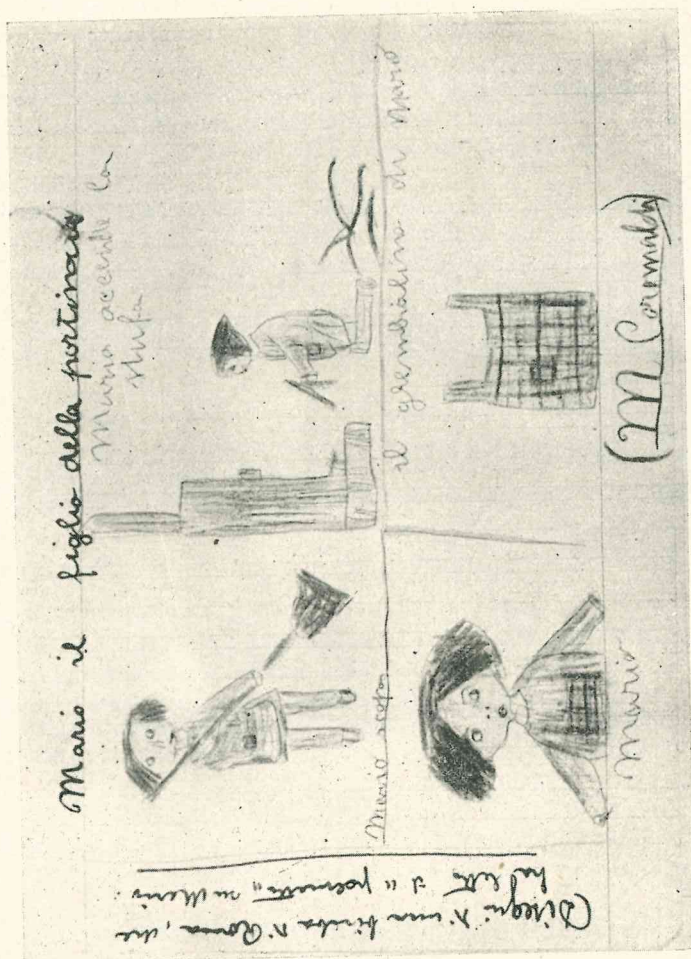 Mario il figlio della portinaia
Mario accende la
stufa
Mario scopa
il grembialino di Mario
Mario
(M Caromaldi)
Disegni d'una bimba di Roma, che
ha letto il "poemetto" su Mario.